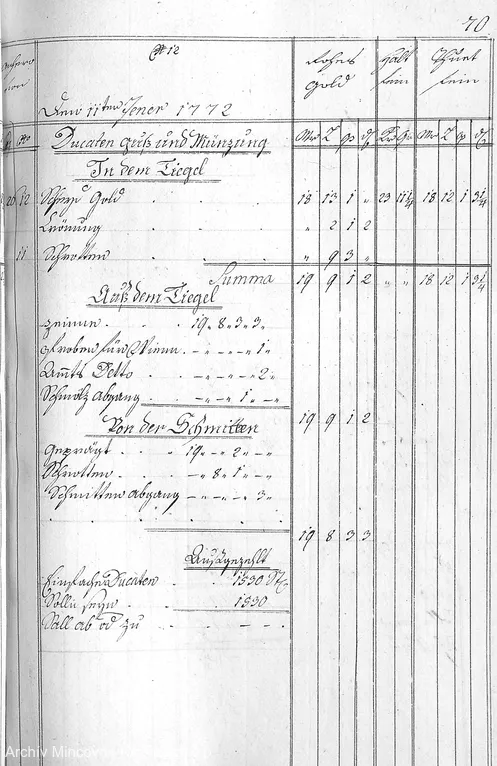 70
No 12
Rohes Gold
Halt fein
Thuet fein
Den 11ten Jener 1772
Ducaten guß und Münzung
Mr L q d K Gr Mr L q d
In dem Tiegel
20 12 Gold 18 13 1 „ 23 11¼ 18 12 1 3¼
„ 2 1 2
11 Schrotten „ 9 3 „
Summa 19 9 1 2 „ „ 18 12 1 3¼
Auß dem Tiegel
Zeinne 19 „ 8 „ 3 „ 3 „
Proben für Wienn „ „ „ 1 „
Ammts Detto „ „ „ 2 „
Schmölz Abgang „ „ 1 „ „
19 9 1 2
Von der Schmitten
Geprägt 19 „ „ 2 „ „
Schrotten „ 8 „ 1 „ „
Schmitten Abgang „ „ „ 3 „
19 8 3 3
Außgezehlt
Einfache Ducaten 1530 St
Solln seyn 1530
Fall ab od zu
Archiv Mincov